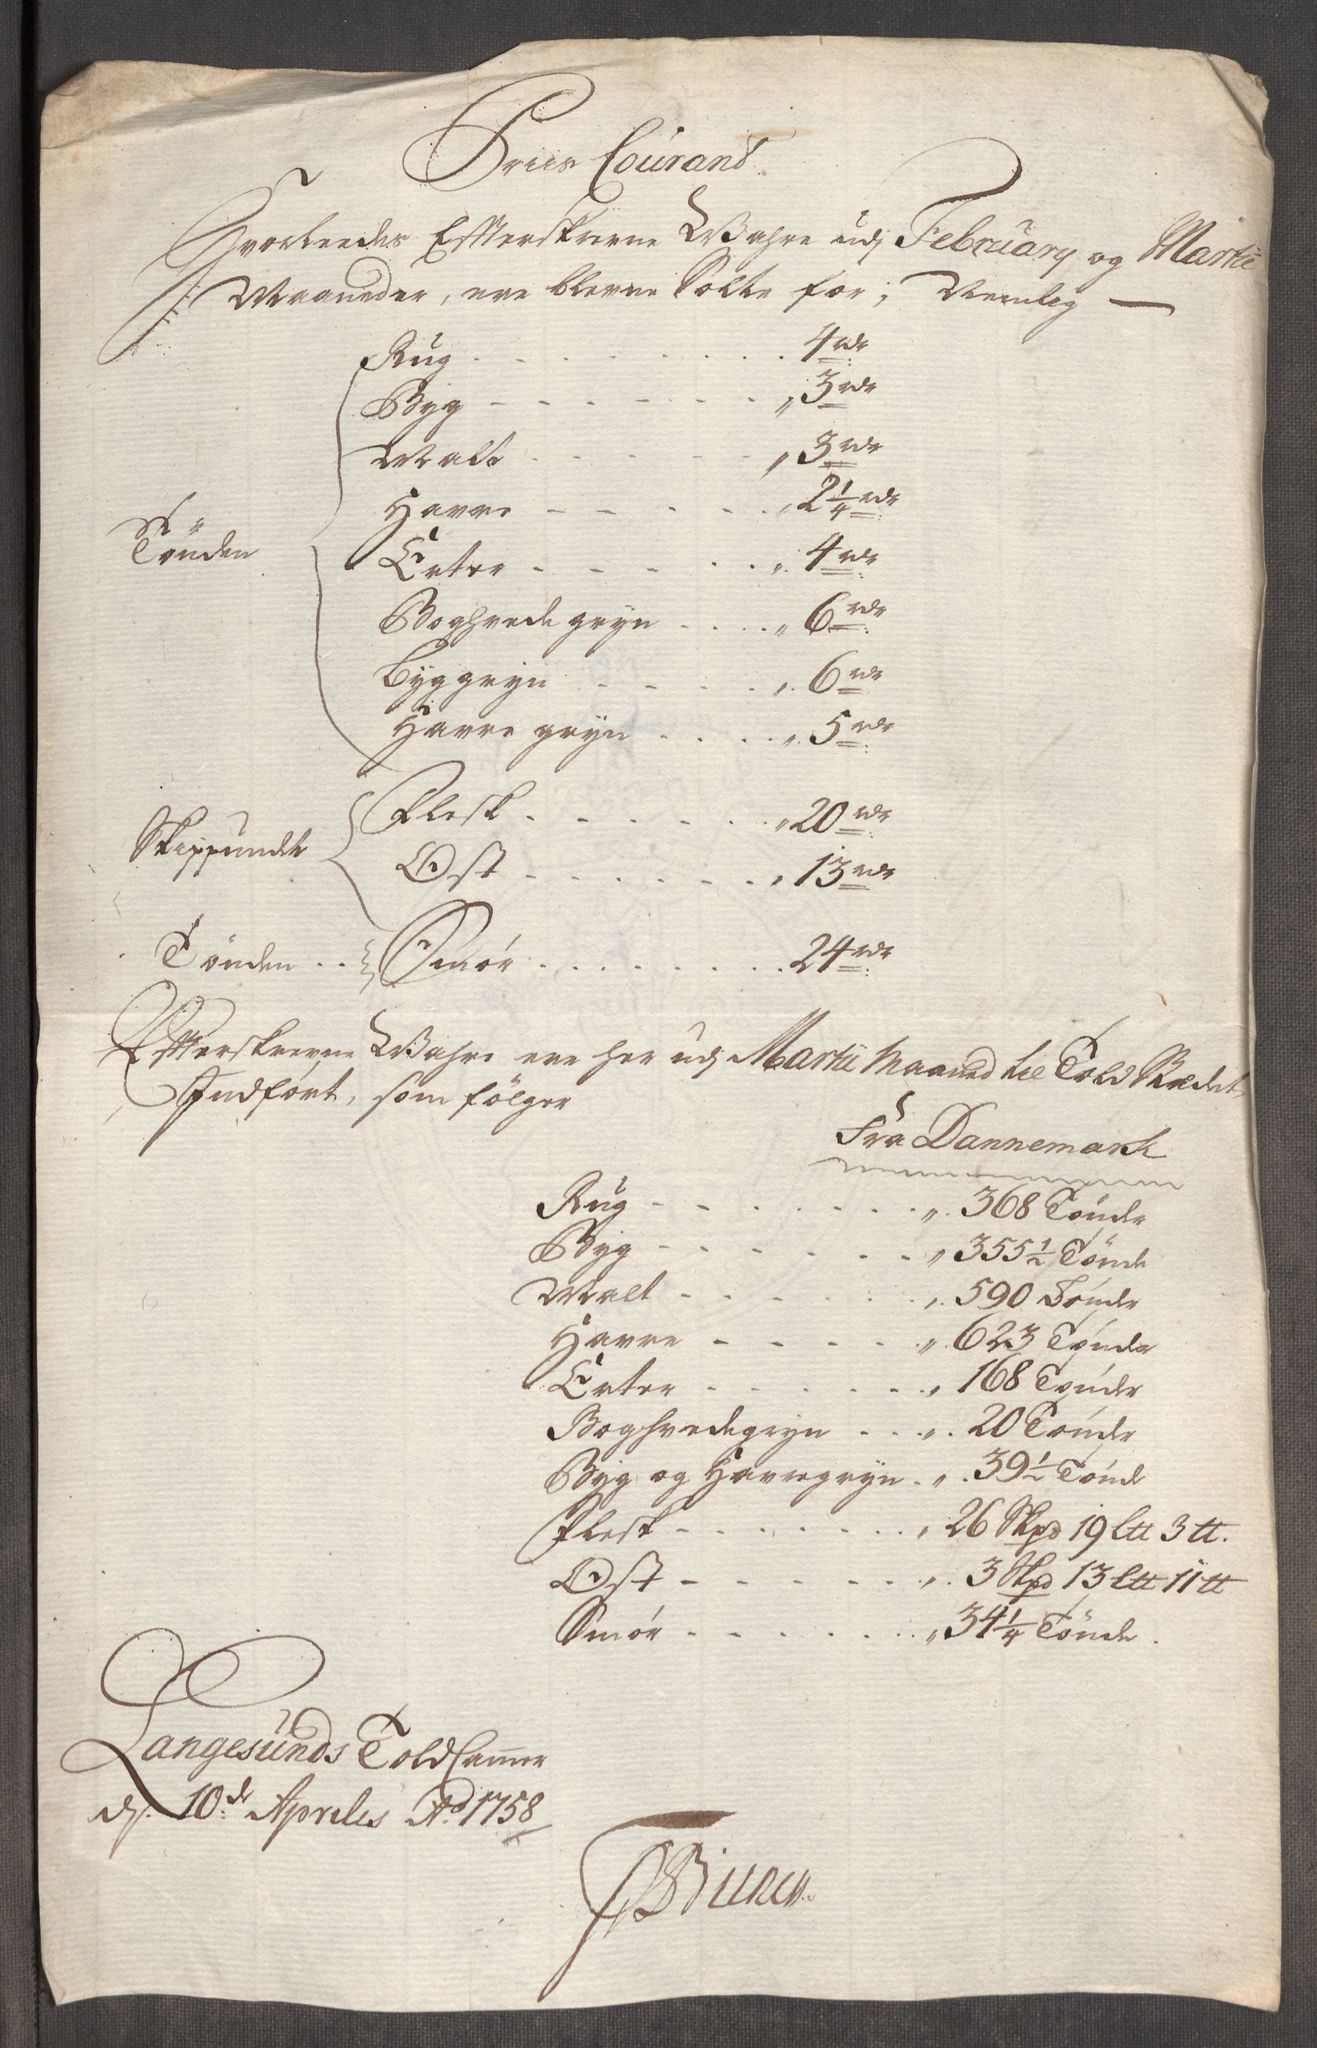 Priis Courand
Hvorleedes Effterskrevne Wahre udj February og Martii
Maaneder, ere blevne Solte for; Nemlig
Rug 4 rdr
Byg 3 rdr
Malt 3 rdr
Havre 2 1/4 rdr
Tønden
Erter 4 rdr
Boghvede gryn 6 rdr
Byggryn 6 rdr
Havre gryn 5 rdr
Flesk 20 rdr
Skippundet
Ost 13 rdr
Tønden Smør 24 rdr
Effterskrevne Wahre ere her udj Martii Maaned til Told Stædet
Indført, som følger
Fra Dannemark
Rug 368 Tønder
Byg 355 1/2 Tønde
Malt 590 Tønder
Havre 623 Tønder
Erter 168 Tønder
Boghvedegryn 20 Tønder
Byg og Havregryn 39 1/2 Tønde
Flesk 26 Skpd 19 Ltt 3 tt.
Ost 3 Skpd 13 Ltt 11 tt
Smør 34 1/4 Tønde
Langesunds Told Cammer
dj. 10de Apriles Ao. 1758